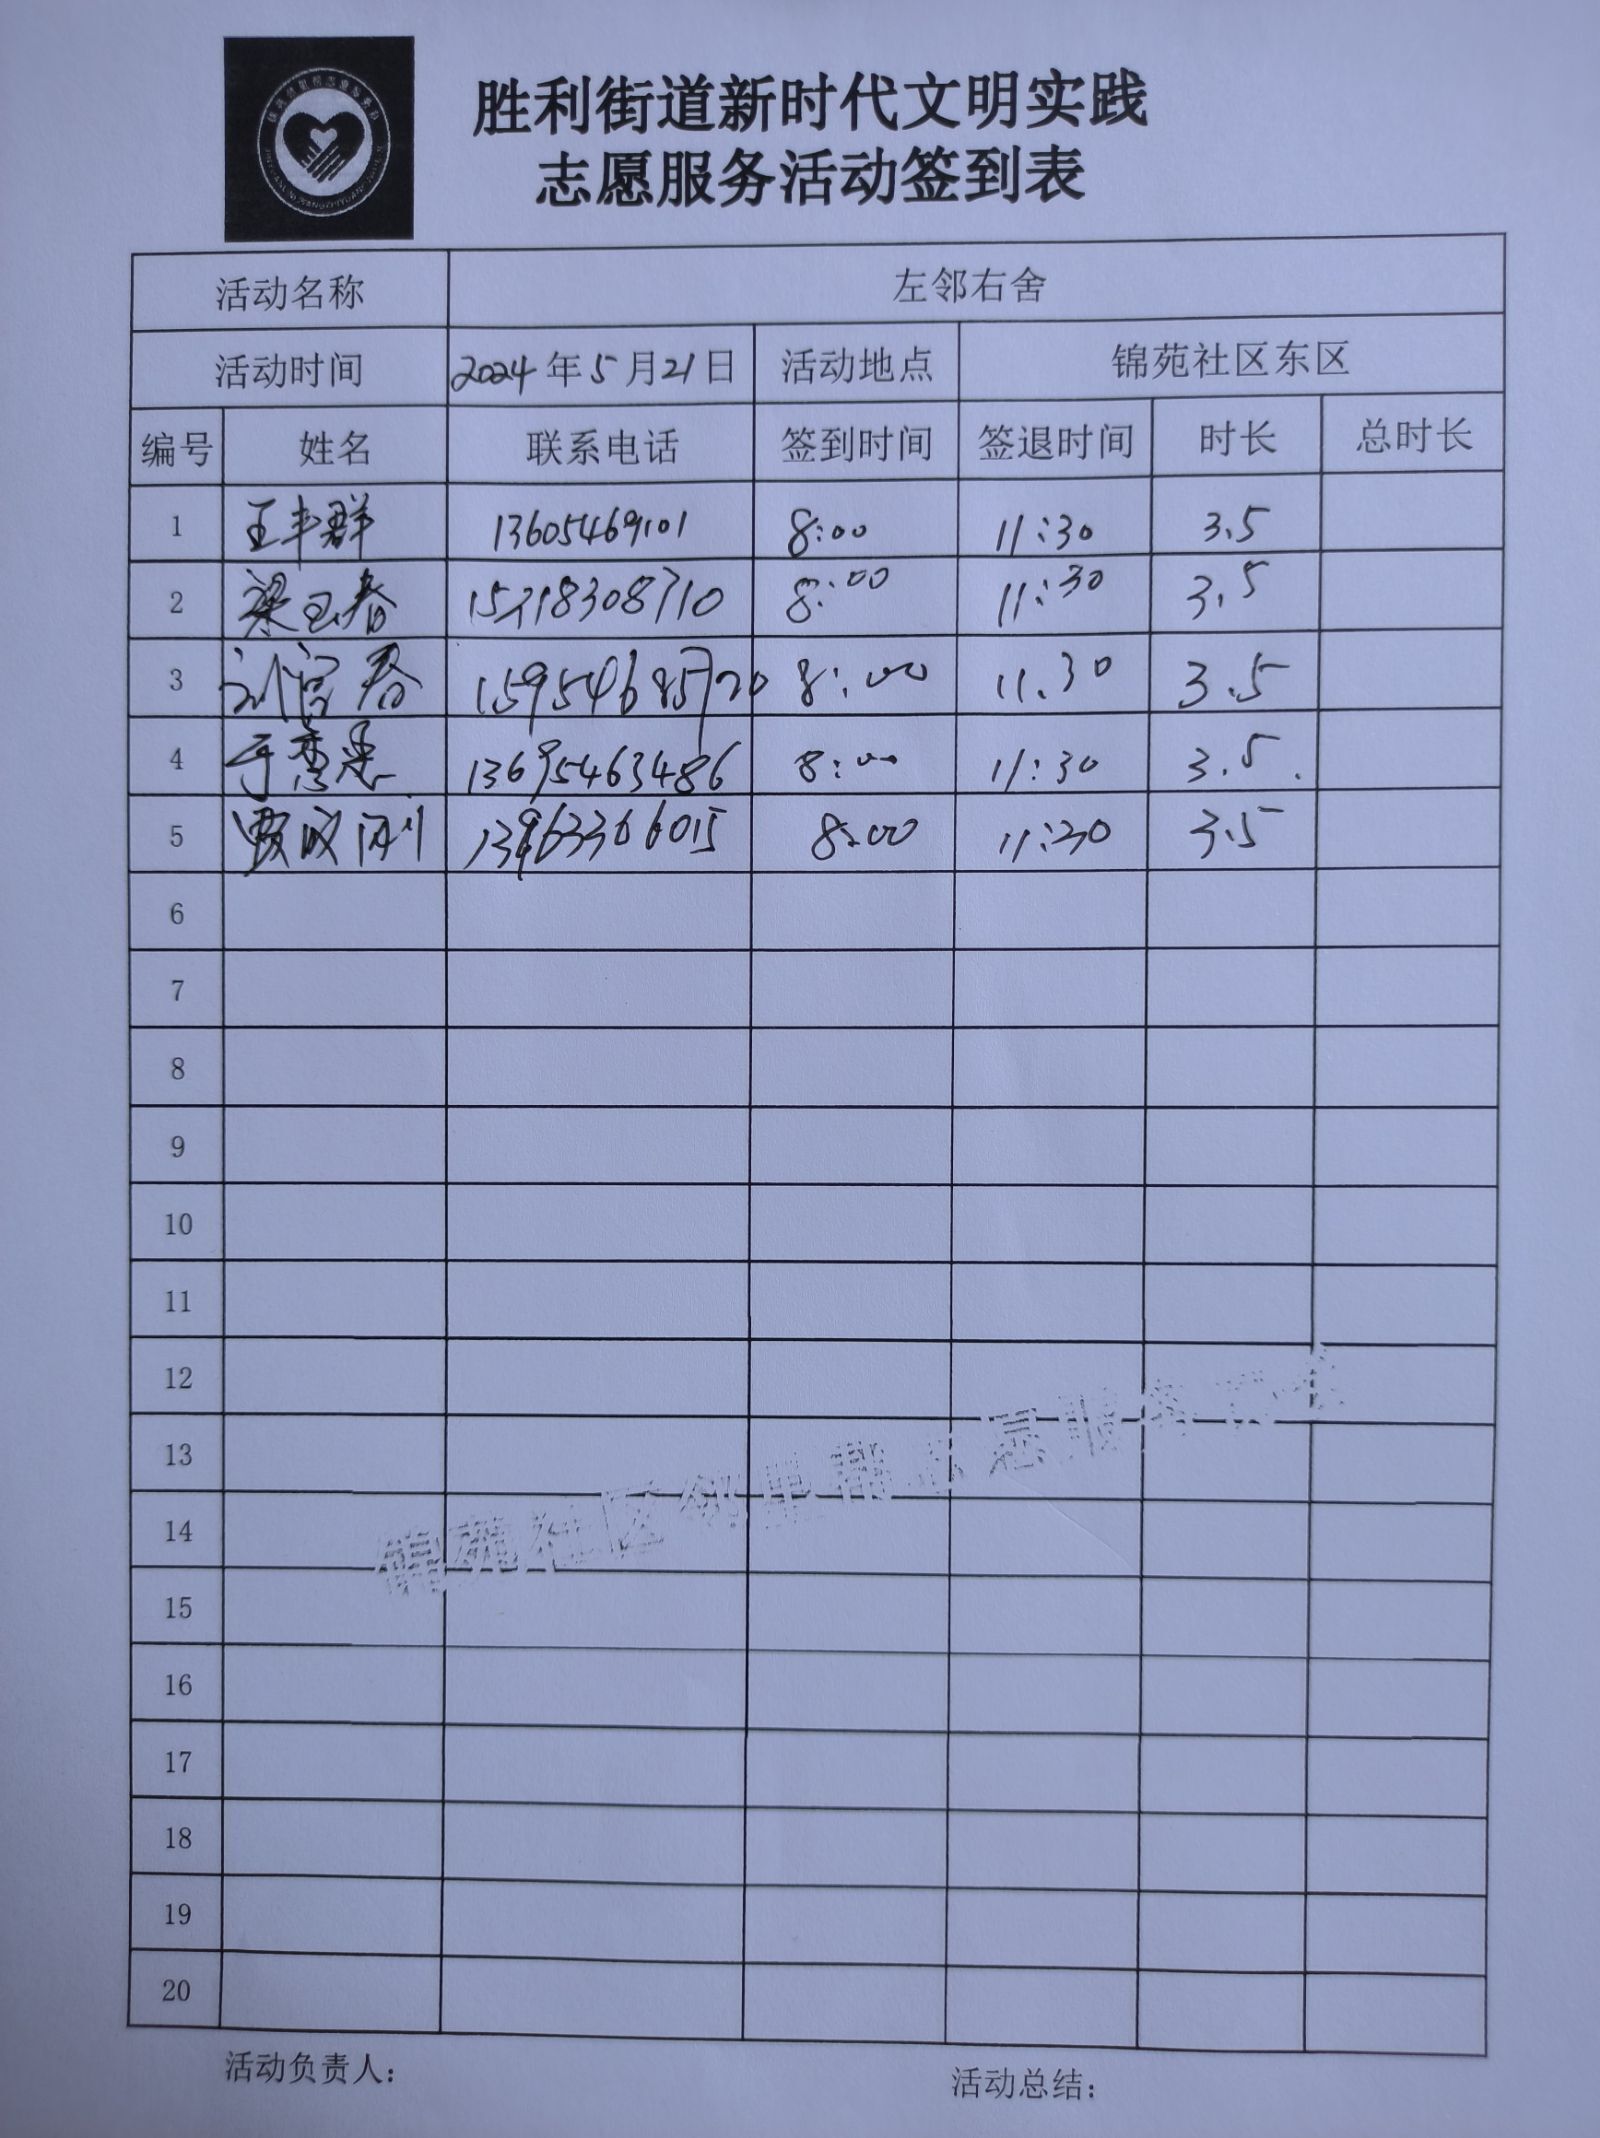 胜利街道新时代文明实践
志愿服务活动签到表
活动名称 左邻右舍
活动时间 2024年5月21日 活动地点 锦苑社区东区
编号 姓名 联系电话 签到时间 签退时间 时长 总时长
1 王丰群 13605469101 8:00 11:30 3.5
2 梁玉春 15218308710 8:00 11:30 3.5
3 刘官春 15954685720 8:00 11.30 3.5
4 于 13695463486 8:00 11:30 3.5.
5 贾成刚 13963366015 8:00 11:30 3.5
6
7
8
9
10
11
12
13
14
15
16
17
18
19
20
锦苑社区邻里帮志愿服务
活动负责人: 活动总结: